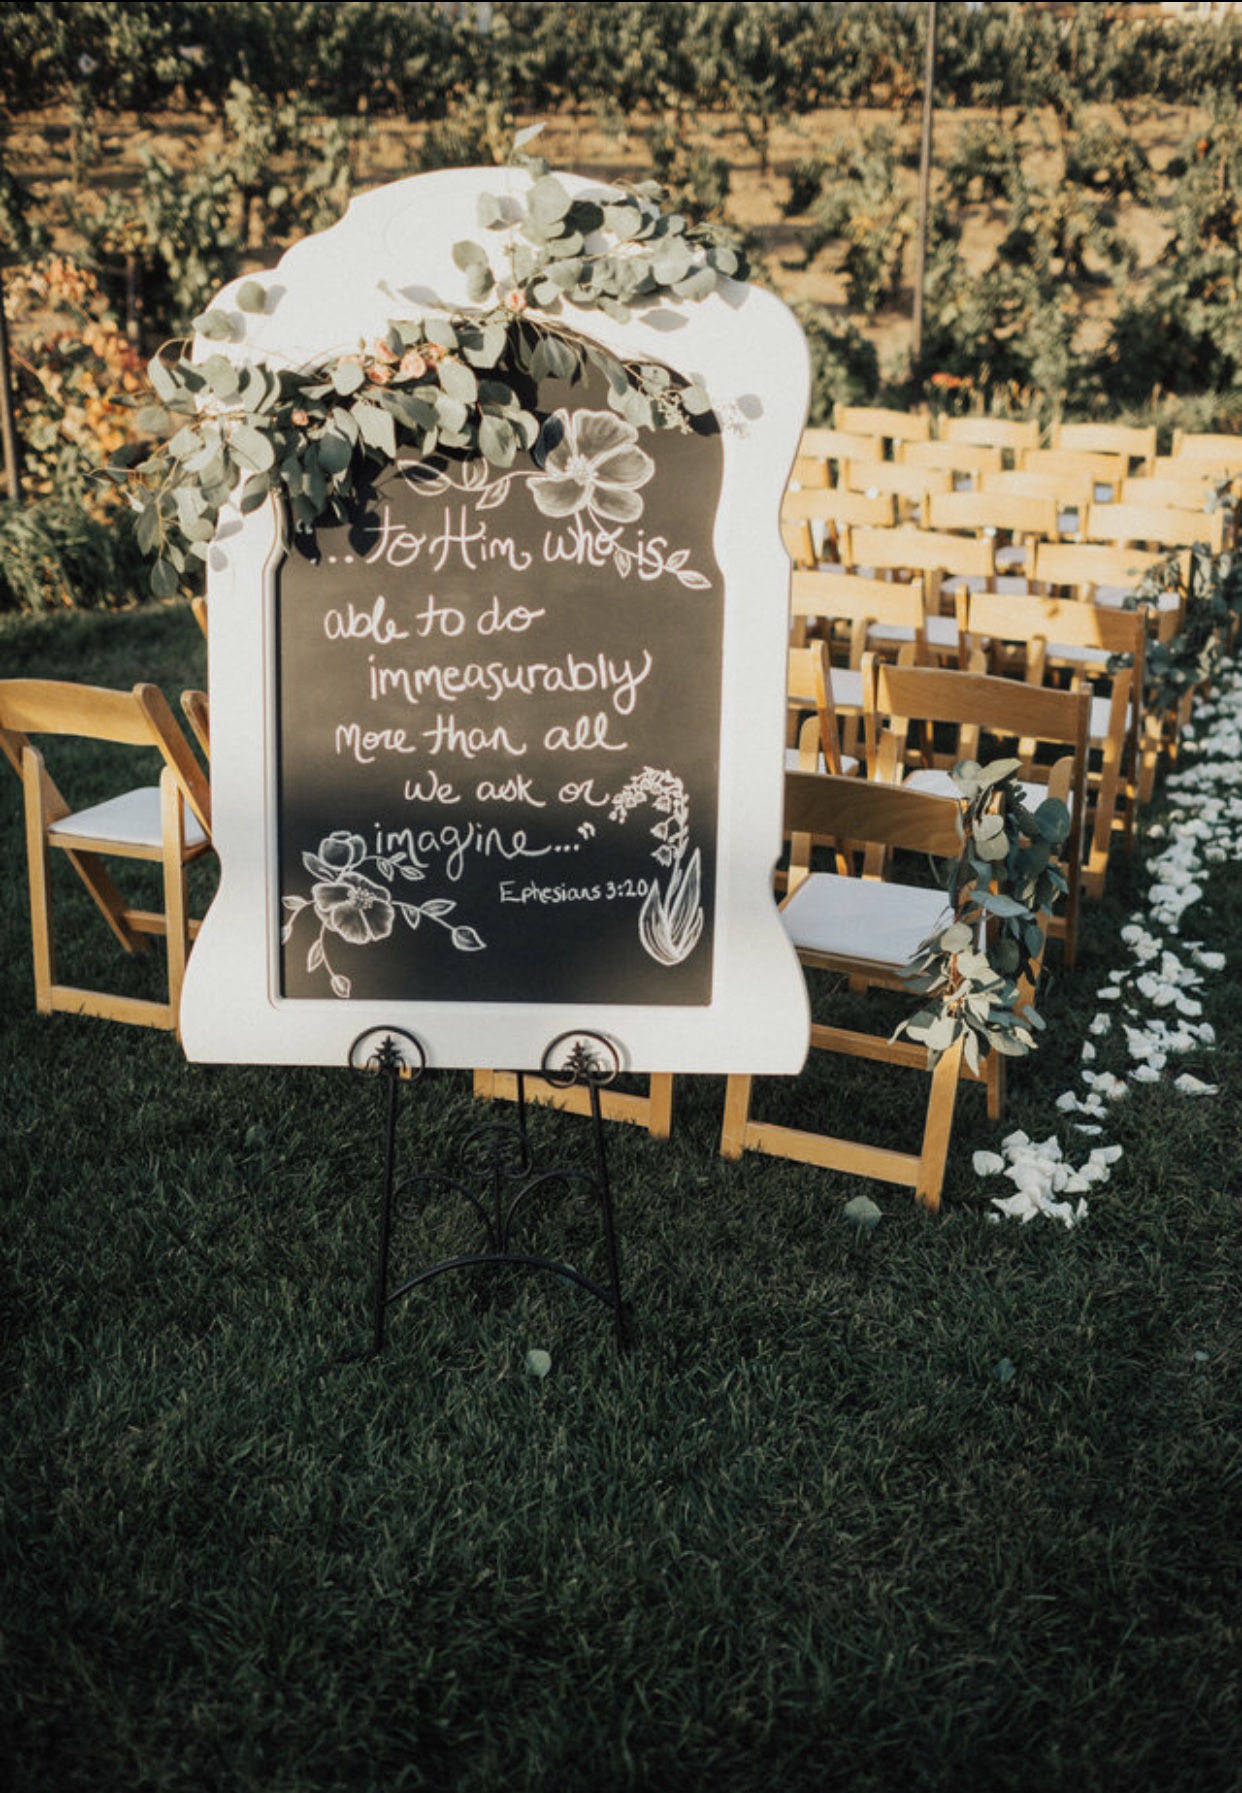 "...to Him who is
able to do
immeasurably
more than all
we ask or
imagine..."
Ephesians 3:20